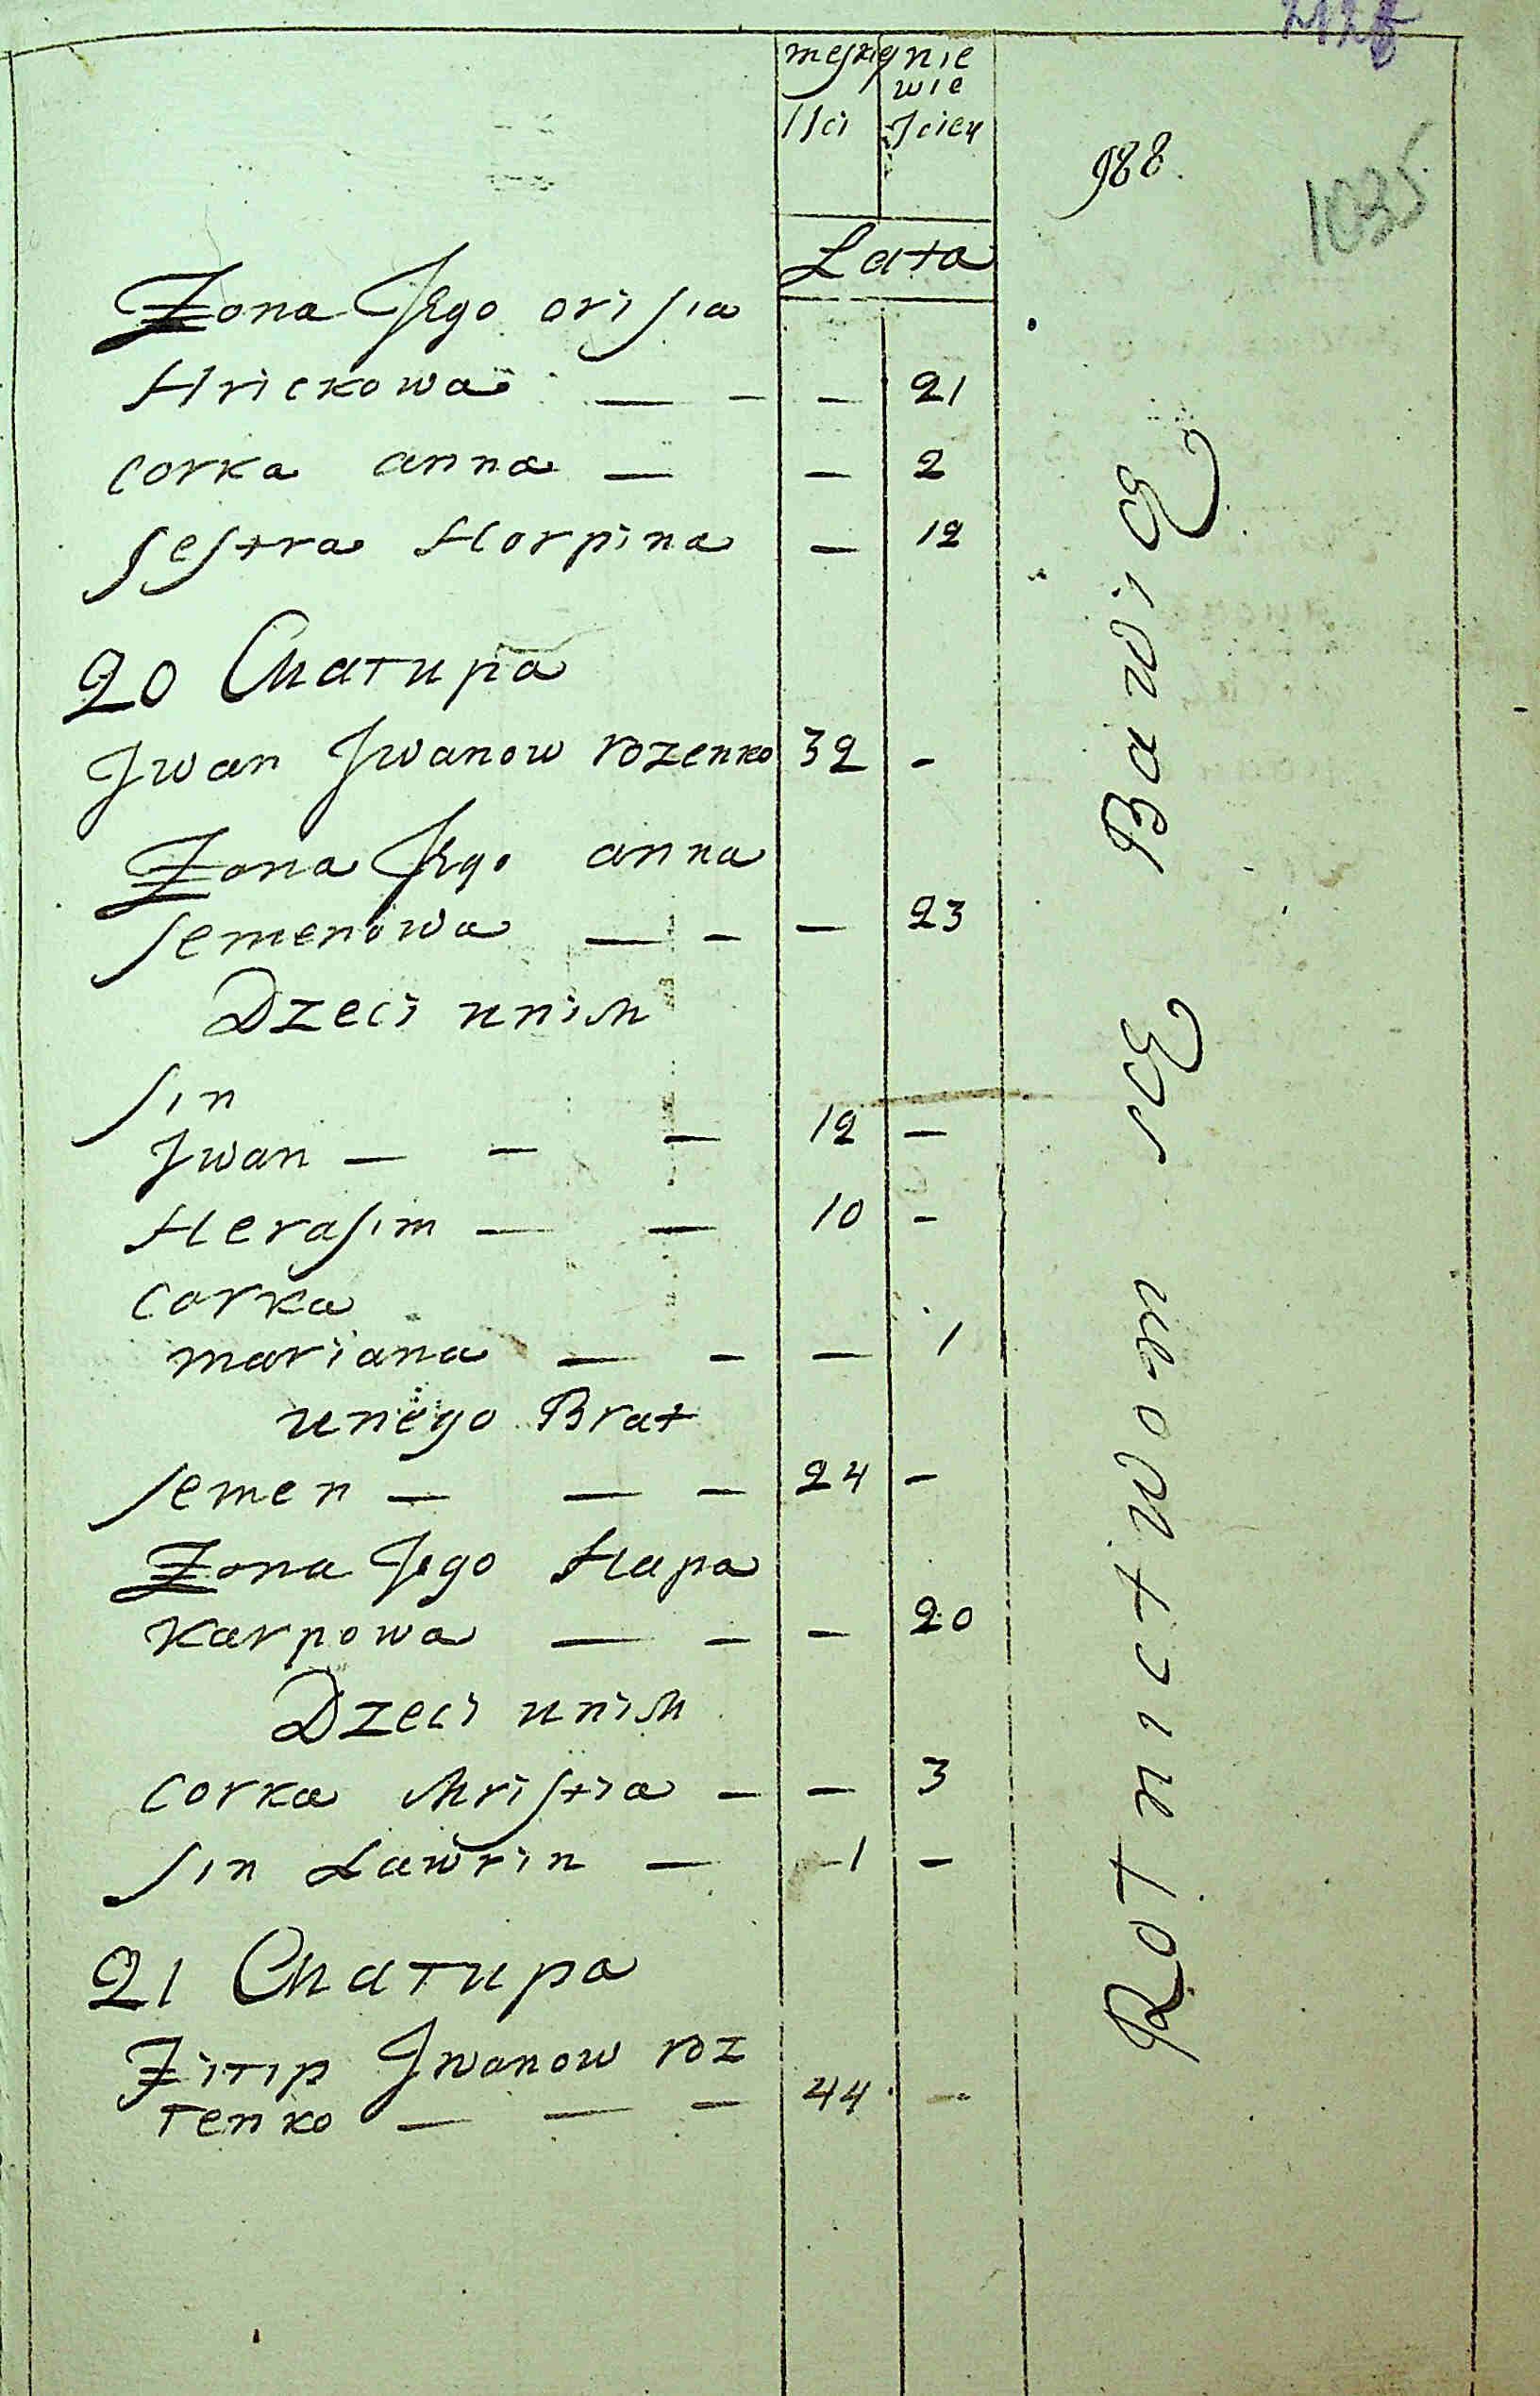 988.
1035
męskię nie
wie
lści ściey
Lata
Żona Jego orisia
Hrickowa — - — 21
corka anna — — 2
sestra Horpina — 12
20 Chałupa
Jwan Jwanow rozenko 32 -
Żona Jego anna
semenowa — - — 23
Dzeci unich
sin
Jwan — - — 12 —
Herasim — — 10 -
corka
mariana — - — 1
unego Brat
semen — — - 24 -
Żona Jego Hapa
karpowa — - — 20
Dzeci unich
corka christia - — 3
sin Lawrin — -1 -
21 Chałupa
Filip Jwanow roz
Tenko — — - 44 -
Rotnictwom sę Bawię